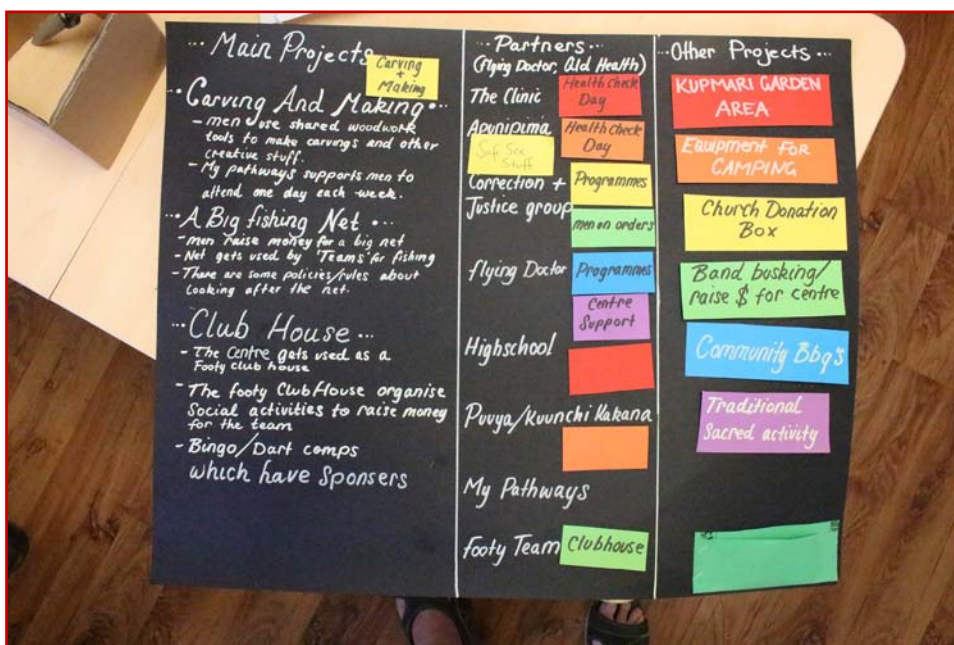 ...Main Projects
Carving
+
Making
• Carving And Making •..
- men use shared woodwork
tools to make carvings and other
creative stuff.
- My pathways supports men to
attend one day each week.
..• A Big fishing Net •...
- men raise money for a big net
- Net gets used by 'Teams' for fishing
- There are some policies/rules about
Looking after the net.
...Club House...
- The Centre gets used as a
Footy club house
- The footy ClubHouse organise
Social activities to raise money
for the team
- Bingo/Dart comps
which have Sponsers
...Partners...
(Flying Doctor, Qld Health)
The Clinic
Health Check
Day
Apunipima
Health Check
Day
Safe Sex
Stuff
Correction +
Justice group
Programmes
men on orders
flying Doctor
Programmes
Centre
Support
Highschool
Puuya/Kuunchi Kakana
My Pathways
footy Team
Clubhouse
..Other Projects...
KUPMARI GARDEN
AREA
Equipment FOR
CAMPING
Church Donation
Box
Band busking/
raise $ for centre
Community Bbq's
Traditional
Sacred activity